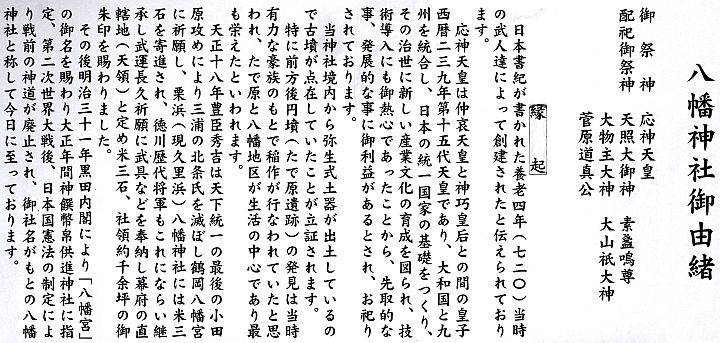 八幡神社御由緒
御祭神　応神天皇
配祀御祭神　天照大御神　素盞嗚尊
大物主大神　大山祇大神
菅原道真公
縁起
日本書紀が書かれた養老四年（七二〇）当時
の武人達によって創建されたと伝えられており
ます。
応神天皇は仲哀天皇と神巧皇后との間の皇子
西暦二三九年第十五代天皇であり、大和国と九
州を統合し、日本の統一国家の基礎をつくり、
その治世に新しい産業文化の育成を図られ、技
術導入にも御熱心であったことから、先取的な
事、発展的な事に御利益があるとされ、お祀り
されております。
当神社境内から弥生式土器が出土しているの
で古墳が点在していたことが立証されます。
特に前方後円墳（たで原遺跡）の発見は当時
有力な豪族のもとで稲作が行なわれていたと思
われ、たで原と八幡地区が生活の中心であり最
も栄えたといわれます。
天正十八年豊臣秀吉は天下統一の最後の小田
原攻めにより三浦の北条氏を滅ぼし鶴岡八幡宮
に祈願し、栗浜（現久里浜）八幡神社には米三
石を寄進され、徳川歴代将軍もこれにならい継
承し武運長久祈願に武具などを奉納し幕府の直
轄地（天領）と定め米三石、社領約千余坪の御
朱印を賜わりました。
その後明治三十一年黒田内閣により「八幡宮」
の御名を賜わり大正年間神饌幣帛供進神社に指
定、第二次世界大戦後、日本国憲法の制定によ
り戦前の神道が廃止され、御社名がもとの八幡
神社と称して今日に至っております。